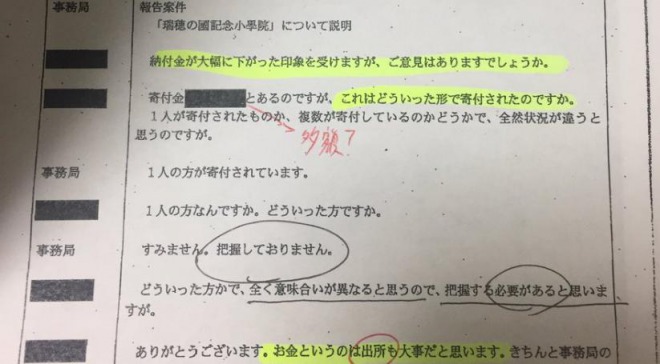 事務局
報告案件
「瑞穂の國記念小學院」について説明
納付金が大幅に下がった印象を受けますが、ご意見はありますでしょうか。
寄付金
とあるのですが、これはどういった形で寄付されたのですか。
1人が寄付されたものか、複数が寄付しているのかどうかで、全然状況が違うと
思うのですが。
多額?
事務局
1人の方が寄付されています。
1人の方なんですか。どういった方ですか。
事務局
すみません。把握しておりません。
どういった方かで、全く意味合いが異なると思うので、把握する必要があると思いま
すが。
ありがとうございます。お金というのは出所も大事だと思います。きちんと事務局の